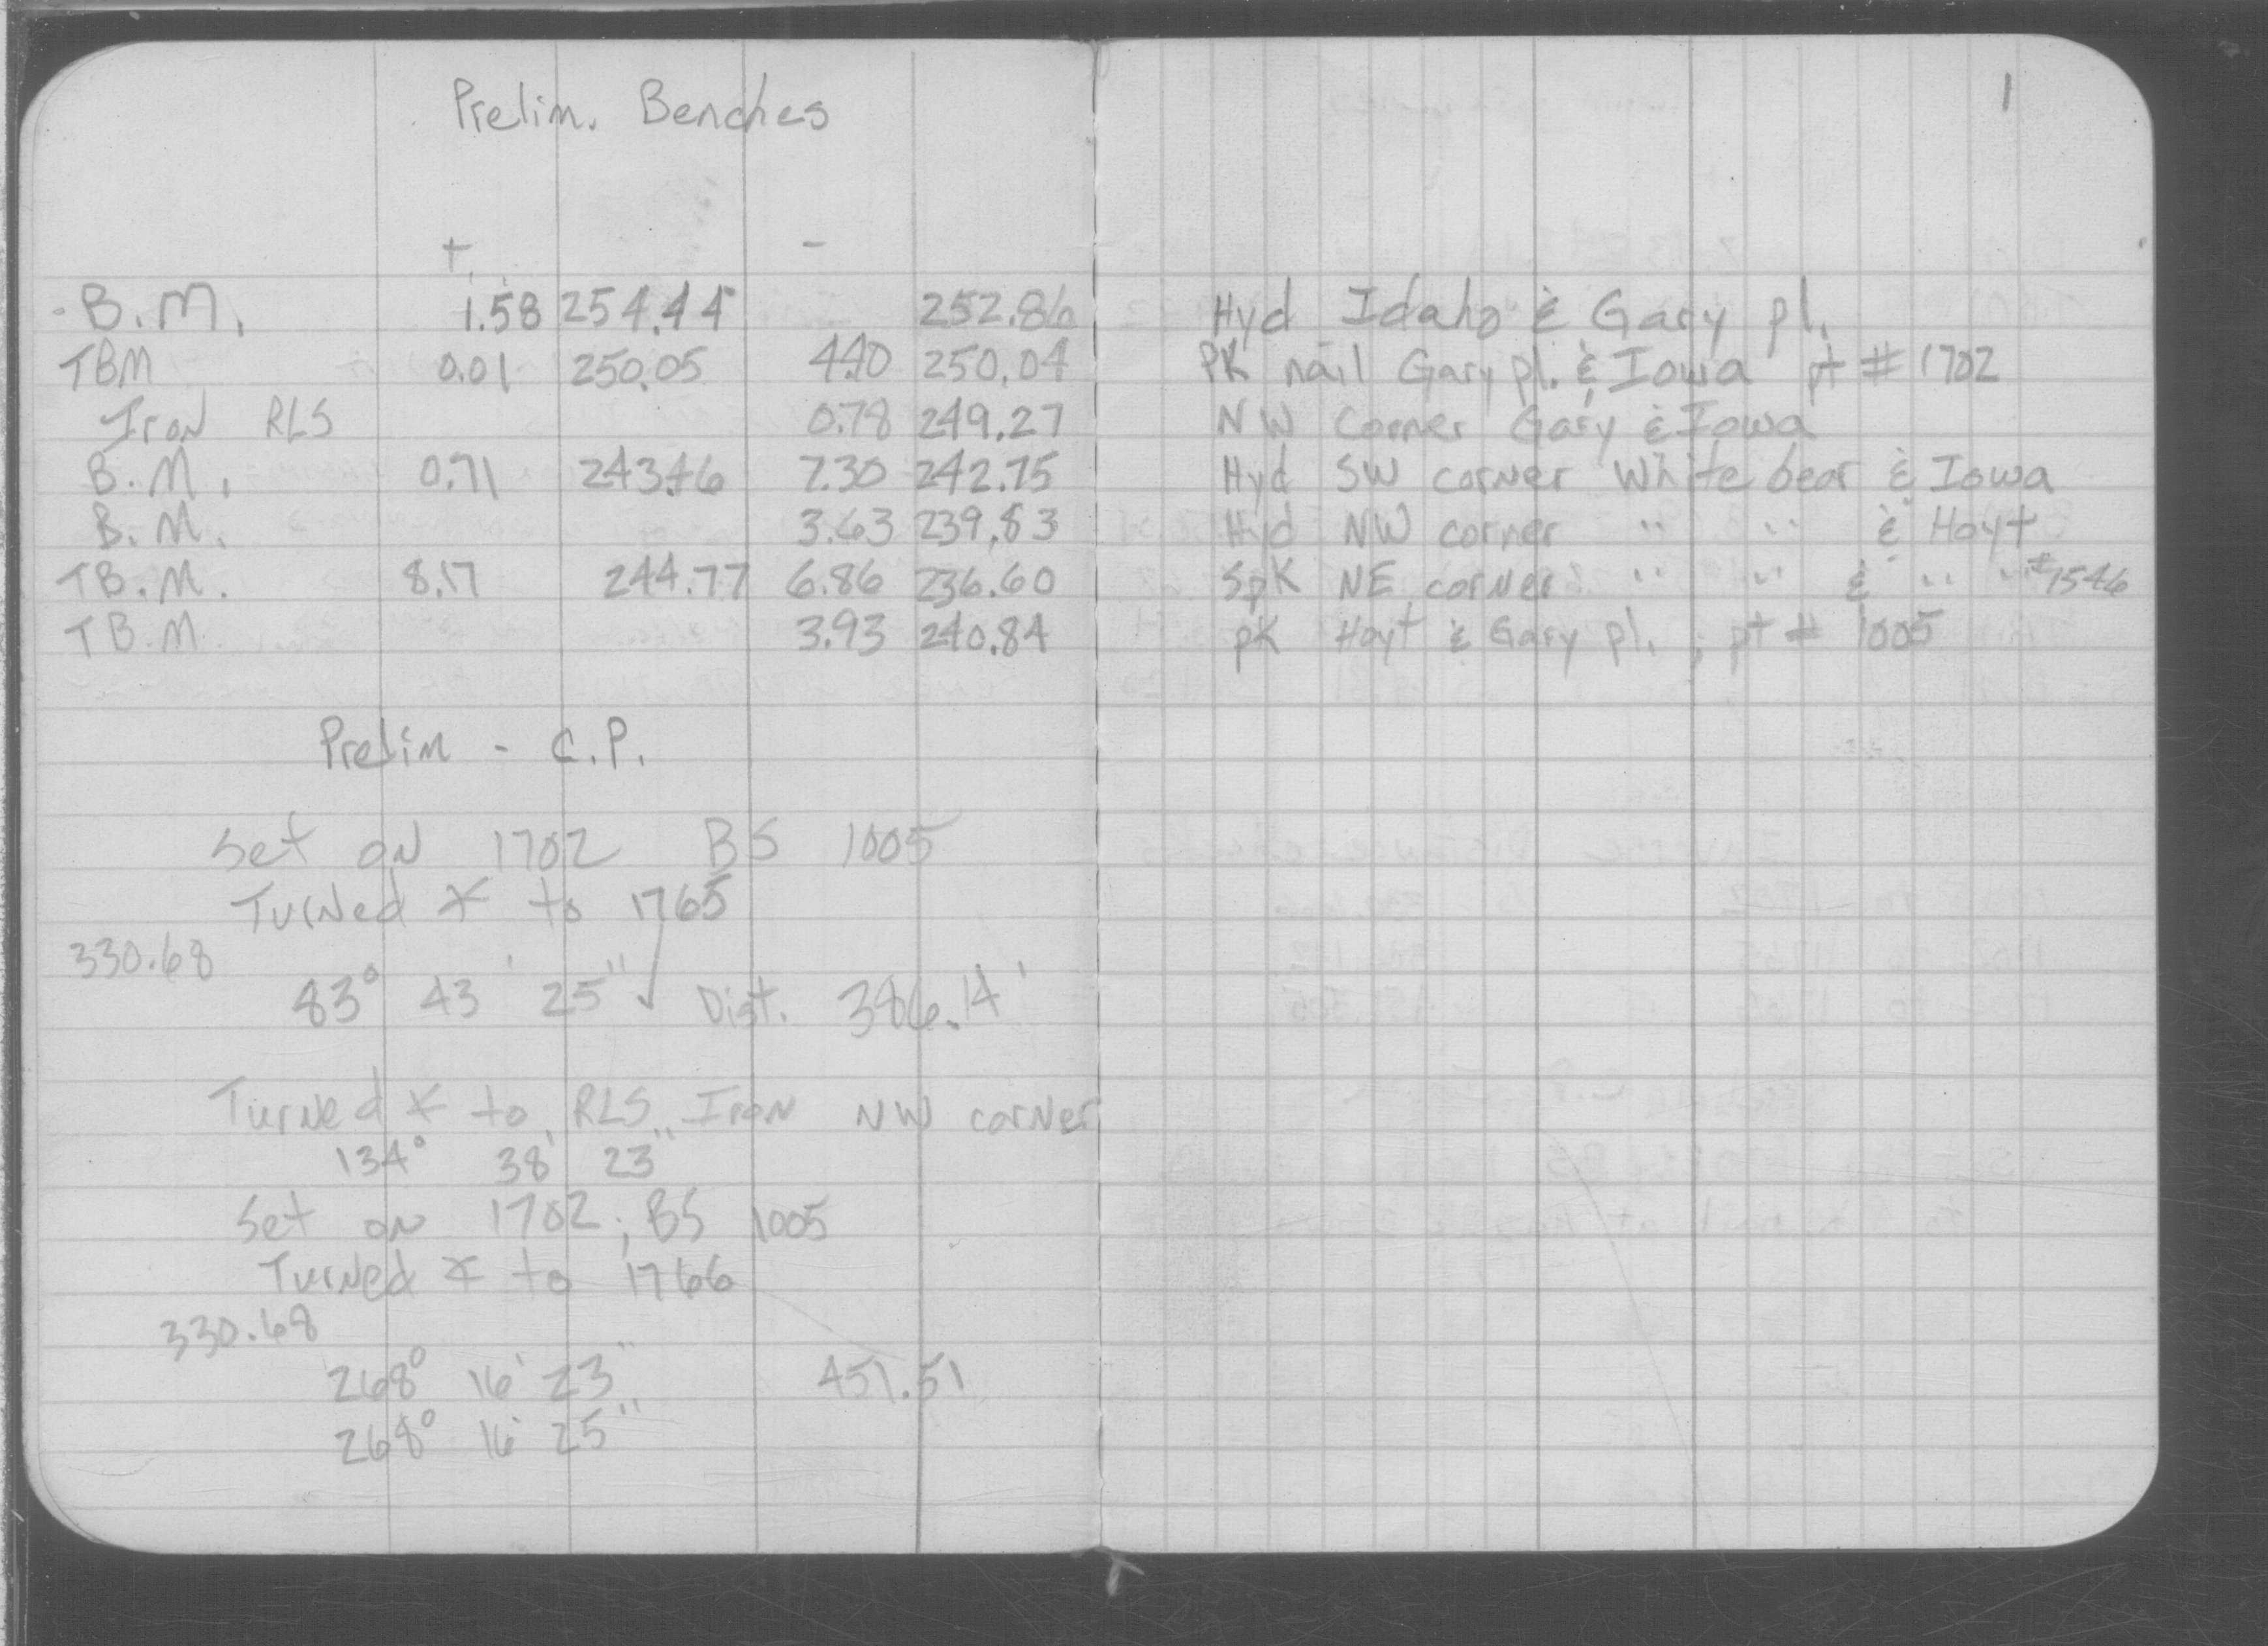 1
Prelim. Benches
+ -
B.M. 1.58 254.44 252.86 Hyd Idaho & Gary pl.
TBM 0.01 250.05 4.40 250.04 PK nail Gary pl. & Iowa pt # 1702
Iron RLS 0.78 249.27 NW Corner Gary & Iowa
B.M. 0.71 243.46 7.30 242.75 Hyd SW corner White bear & Iowa
B.M. 3.63 239.83 Hyd NW corner " " & Hoyt
TB.M. 8.17 244.77 6.86 236.60 SpK NE corner " " & " " #1546
TB.M. 3.93 240.84 pK Hoyt & Gary pl. ; pt # 1005
Prelim - C.P.
Set on 1702 BS 1005
Turned ∡ to 1765
330.68
83° 43' 25" ✓ Dist. 386.14'
Turned ∡ to RLS Iron NW corner
134° 38' 23"
Set on 1702; BS 1005
Turned ∡ to 1766
330.68
268° 16' 23" 451.51
268° 16' 25"